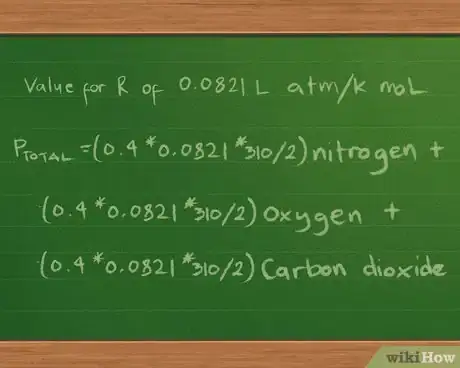 Value for R of 0.0821 L atm/k moL
PTOTAL = (0.4 * 0.0821 * 310/2) nitrogen +
(0.4 * 0.0821 * 310/2) Oxygen +
(0.4 * 0.0821 * 310/2) Carbon dioxide
wikiHow